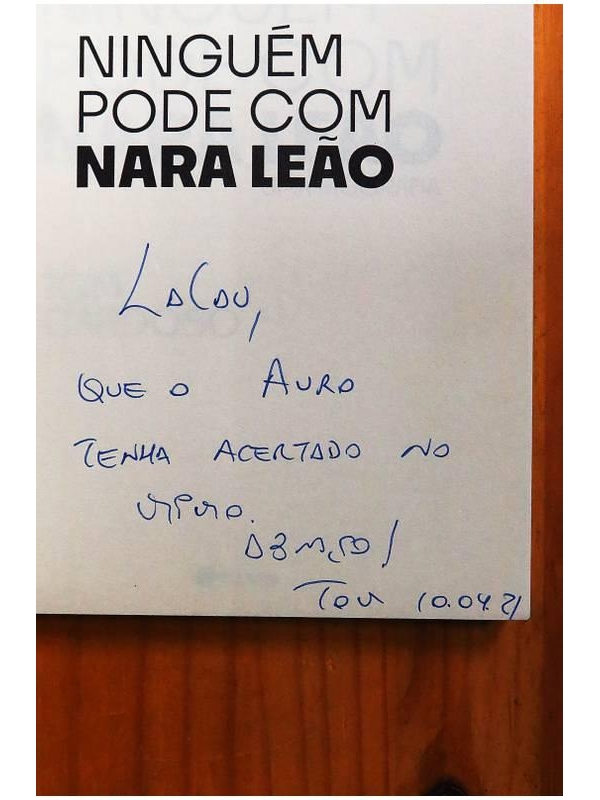 NINGUÉM
PODE COM
NARA LEÃO
LaCau,
QUE O AURO
TENHA ACERTADO NO
ABRAÇO!
Tom 10.04.21